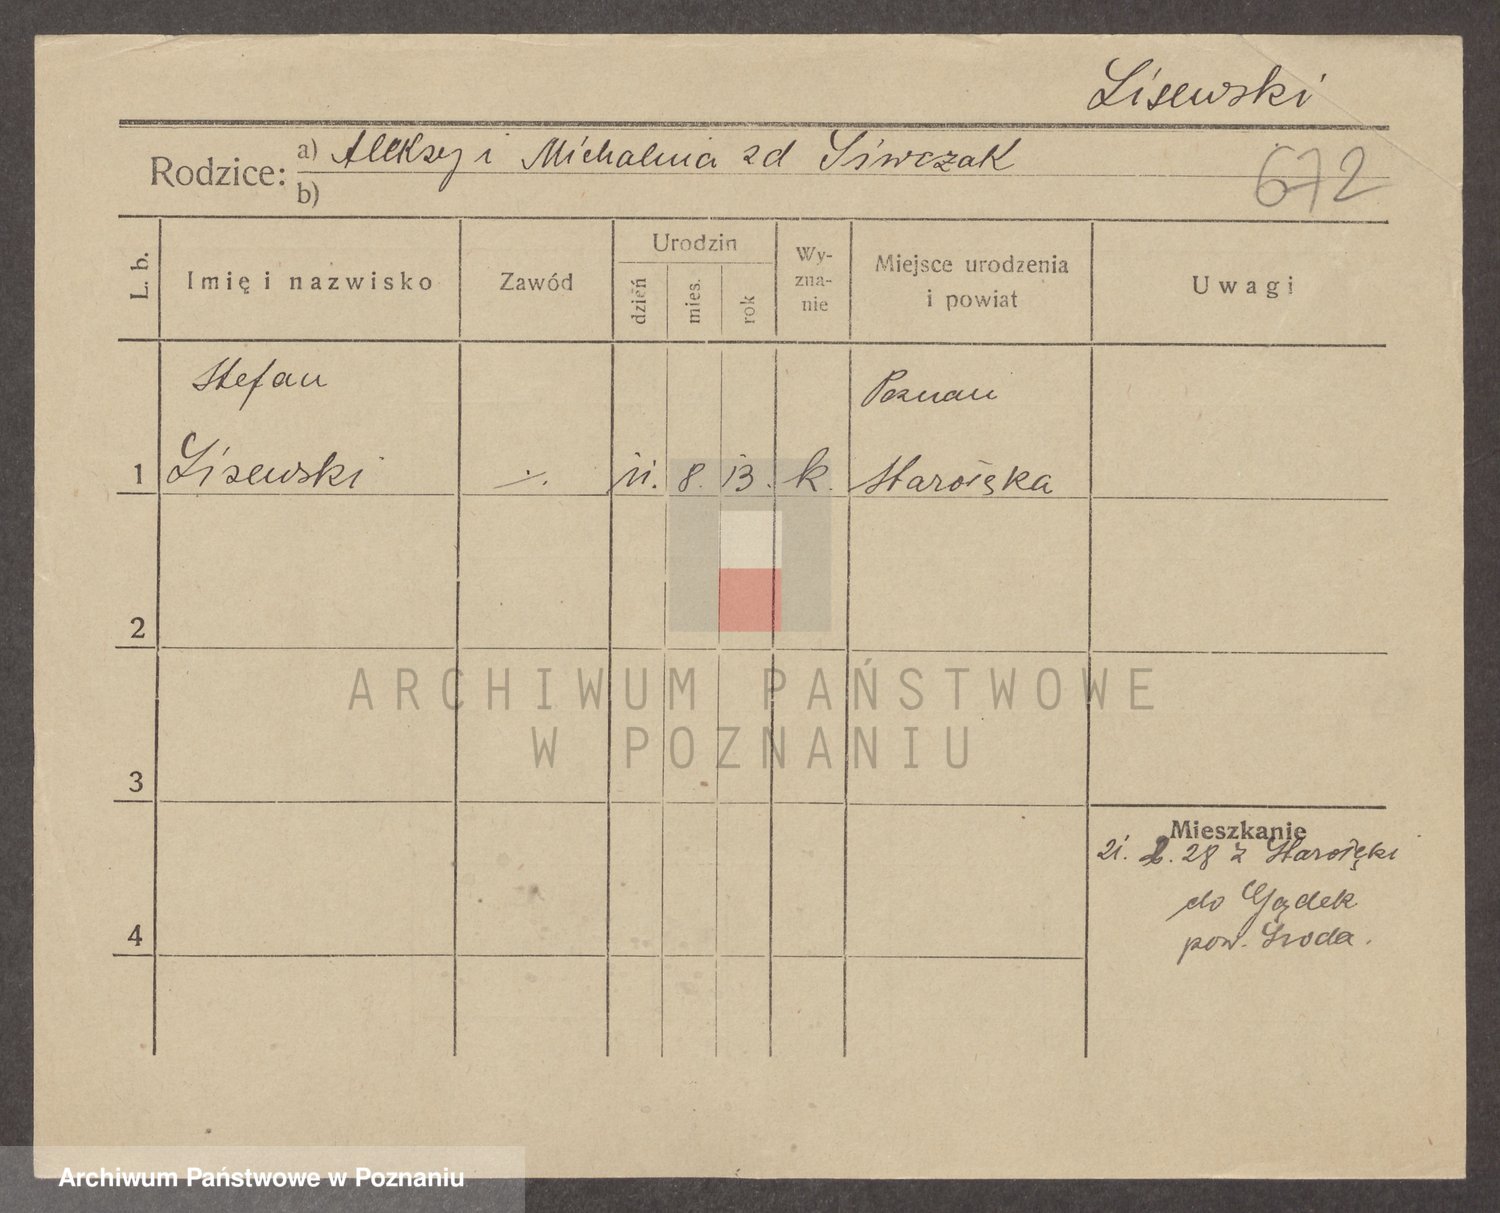 Lisewski
Rodzice: a) Aleksy i Michalina zd Siwczak
b)
672
L. b.
Imię i nazwisko
Zawód
Urodzin
dzień
mies.
rok
Wy-
zna-
nie
Miejsce urodzenia
i powiat
Uwagi
Stefan
Poznan
1 Lisewski ·/. 11. 8. 13. k. Starołęka
2
3
4
Mieszkanie
21. 2. 28 z Starołęki
do Gądek
pow. Sroda.
ARCHIWUM PAŃSTWOWE
W POZNANIU
Archiwum Państwowe w Poznaniu